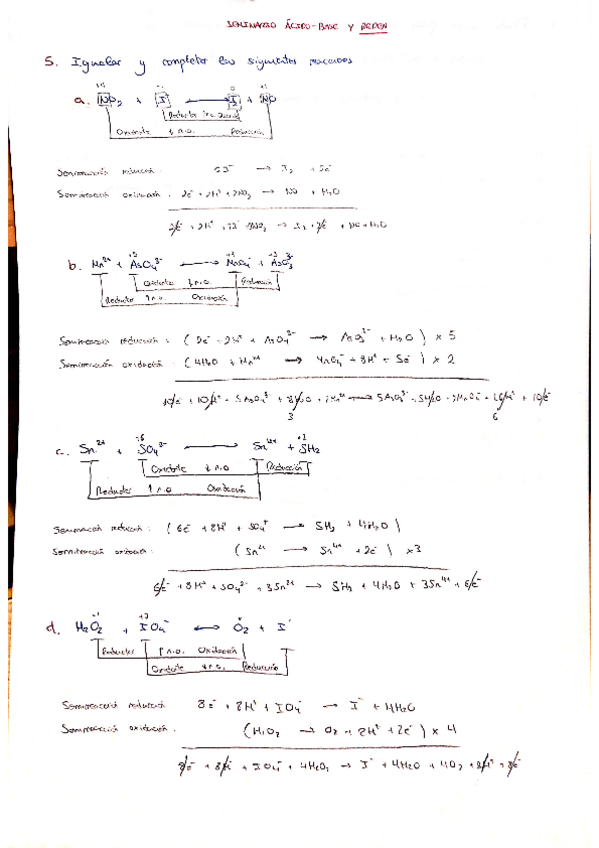 SEMINARIO ÁCIDO-BASE Y REDOX
5. Igualar y completar las siguientes reacciones
a. NO₂ + I⁻ ⟶ I₂ + NO
Reductor
Oxidante ↓ n.o. Reducción
Semirreacción reducción: 2I⁻ → I₂ + 2e⁻
Semirreacción oxidación: 2e⁻ + 2H⁺ + NO₂ → NO + H₂O
b. Mn²⁺ + AsO₄³⁻ ⟶ MnO₄⁻ + AsO₃³⁻
Oxidante ↓ n.o. Reducción
Reductor ↑ n.o. Oxidación
Semirreacción reducción: (2e⁻ + 2H⁺ + AsO₄³⁻ → AsO₃³⁻ + H₂O) × 5
Semirreacción oxidación: (4H₂O + Mn²⁺ → MnO₄⁻ + 8H⁺ + 5e⁻) × 2
10e⁻ + 10H⁺ + 5AsO₄³⁻ + 8H₂O + 2Mn²⁺ ⟶ 5AsO₃³⁻ + 5H₂O + 2MnO₄⁻ + 16H⁺ + 10e⁻
3 6
c. Sn²⁺ + SO₄²⁻ ⟶ Sn⁴⁺ + SH₂
Oxidante ↓ n.o. Reducción
Reductor ↑ n.o. Oxidación
Semirreacción reducción: (6e⁻ + 8H⁺ + SO₄⁼ → SH₂ + 4H₂O)
Semirreacción oxidación: (Sn²⁺ → Sn⁴⁺ + 2e⁻) × 3
6e⁻ + 8H⁺ + SO₄²⁻ + 3Sn²⁺ → SH₂ + 4H₂O + 3Sn⁴⁺ + 6e⁻
d. H₂O₂ + IO₄⁻ ⟷ O₂ + I⁻
Reductor ↑ n.o. Oxidación
Oxidante ↓ n.o. Reducción
Semirreacción reducción 8e⁻ + 8H⁺ + IO₄⁻ → I⁻ + 4H₂O
Semirreacción oxidación: (H₂O₂ → O₂ + 2H⁺ + 2e⁻) × 4
8e⁻ + 8H⁺ + IO₄⁻ + 4H₂O₂ → I⁻ + 4H₂O + 4O₂ + 8H⁺ + 8e⁻